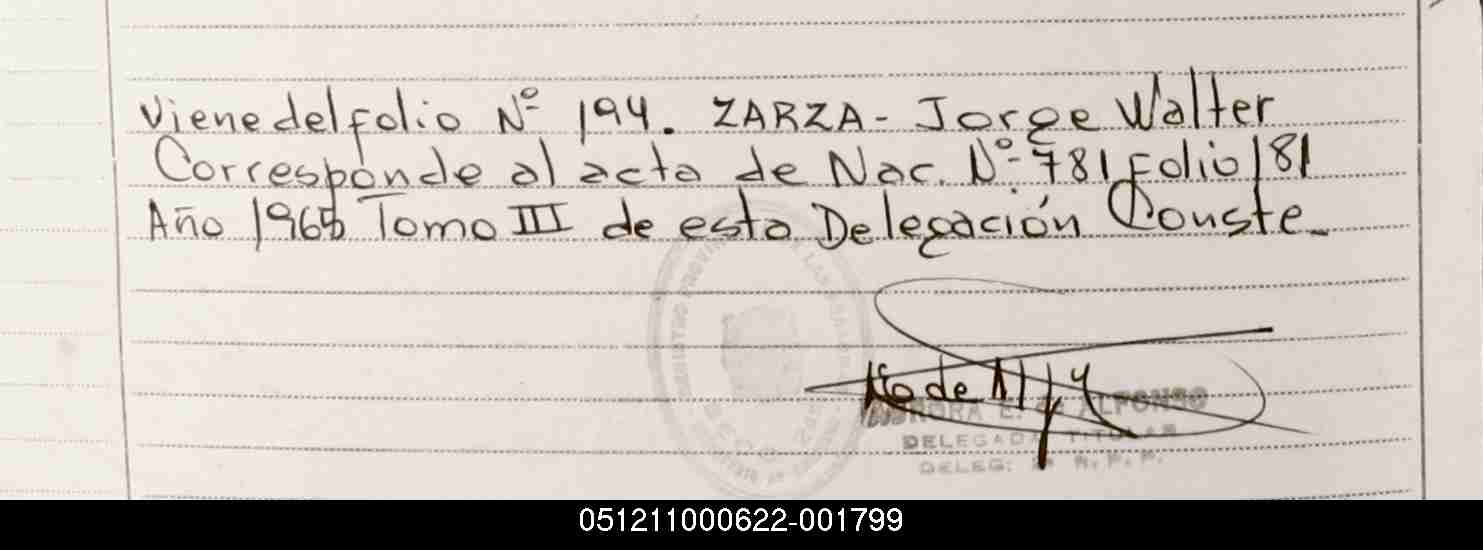 Viene del folio Nº 194. ZARZA - Jorge Walter
Corresponde al acta de Nac. Nº 781 Folio 181
Año 1965 Tomo III de esta Delegación Conste_
ALFONSO
DELEGADA TITULAR
DELEG:
051211000622-001799